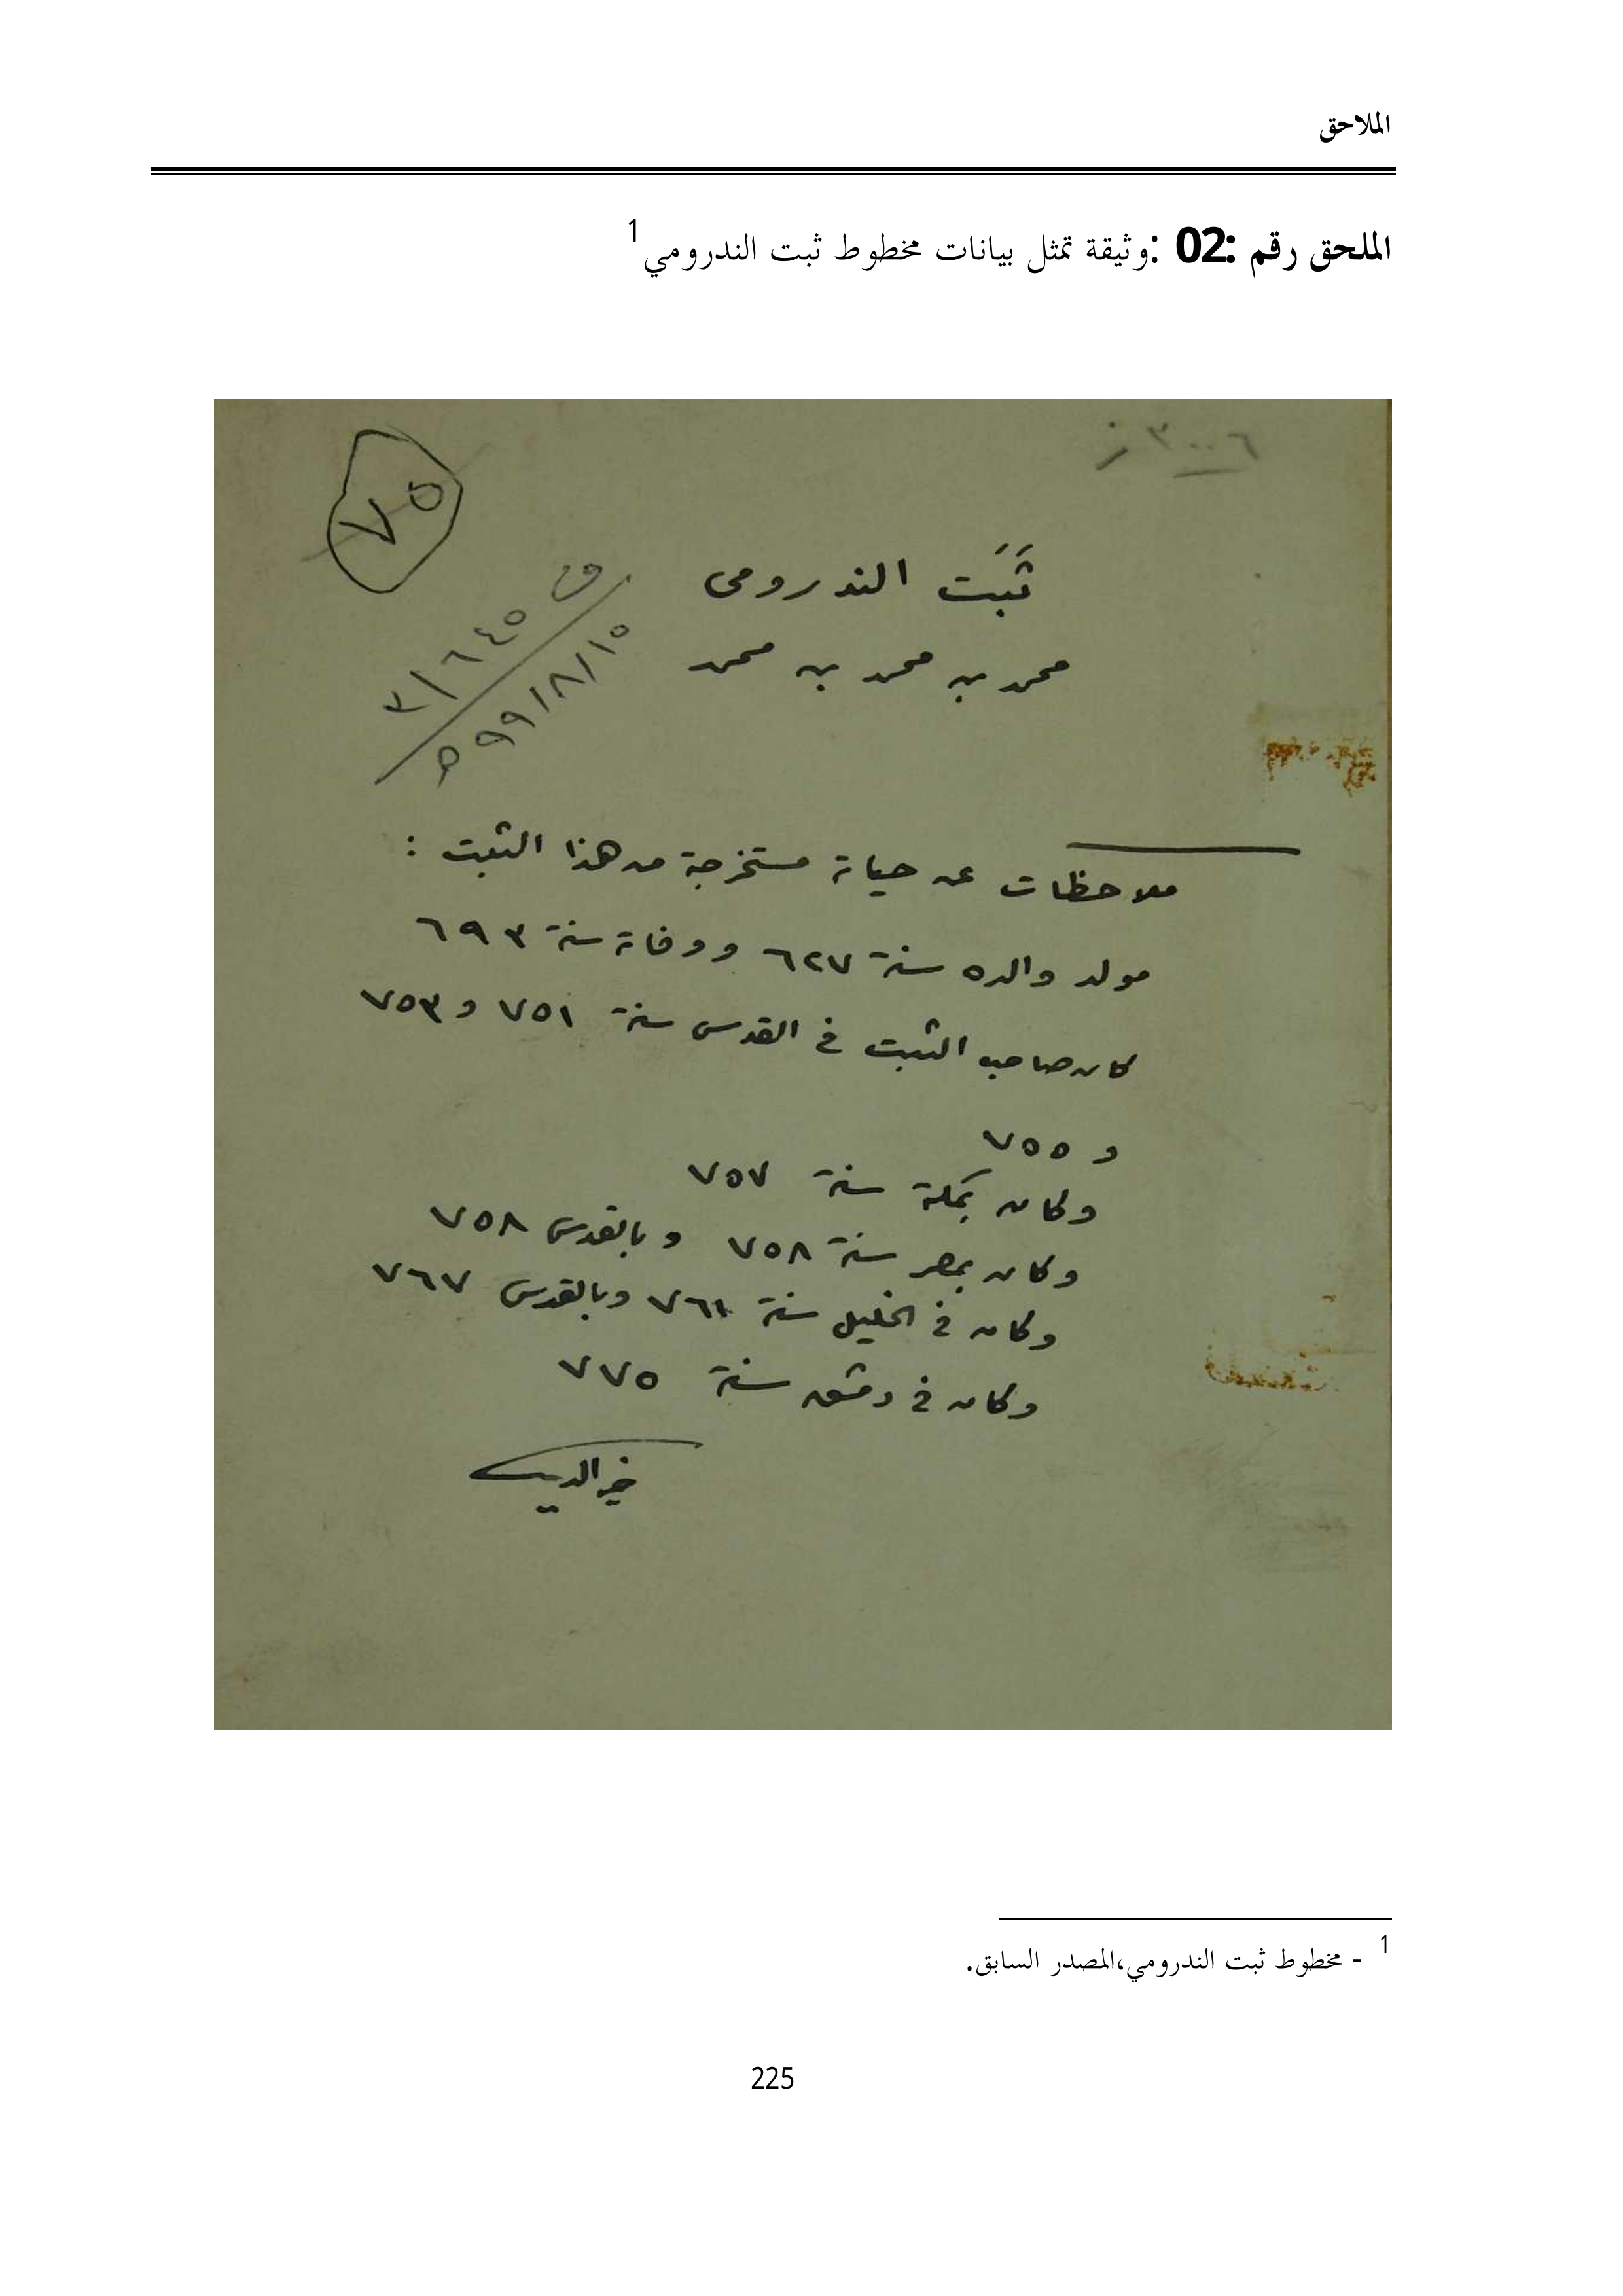 الملاحق
الملحق رقم :02 :وثيقة تمثل بيانات مخطوط ثبت الندرومي1
٣٠٠٦ ز
٧٥
ثَبَت الندرومى
محمد بن محمد بن محمد
٣/٦٤٥
٩٩/٨/١٥
ملاحظات عن حياته مستخرجة من هذا الثبت :
مولد والده سنة ٦٢٧ ووفاته سنة ٦٩٣
كان صاحب الثبت في القدس سنة ٧٥١ و ٧٥٣
و ٧٥٥
وكان بمكة سنة ٧٥٧
وكان بمصر سنة ٧٥٨ وبالقدس ٧٥٨
وكان في الخليل سنة ٧٦١ وبالقدس ٧٦٧
وكان في دمشق سنة ٧٧٥
خير الدين
1 - مخطوط ثبت الندرومي،المصدر السابق.
225